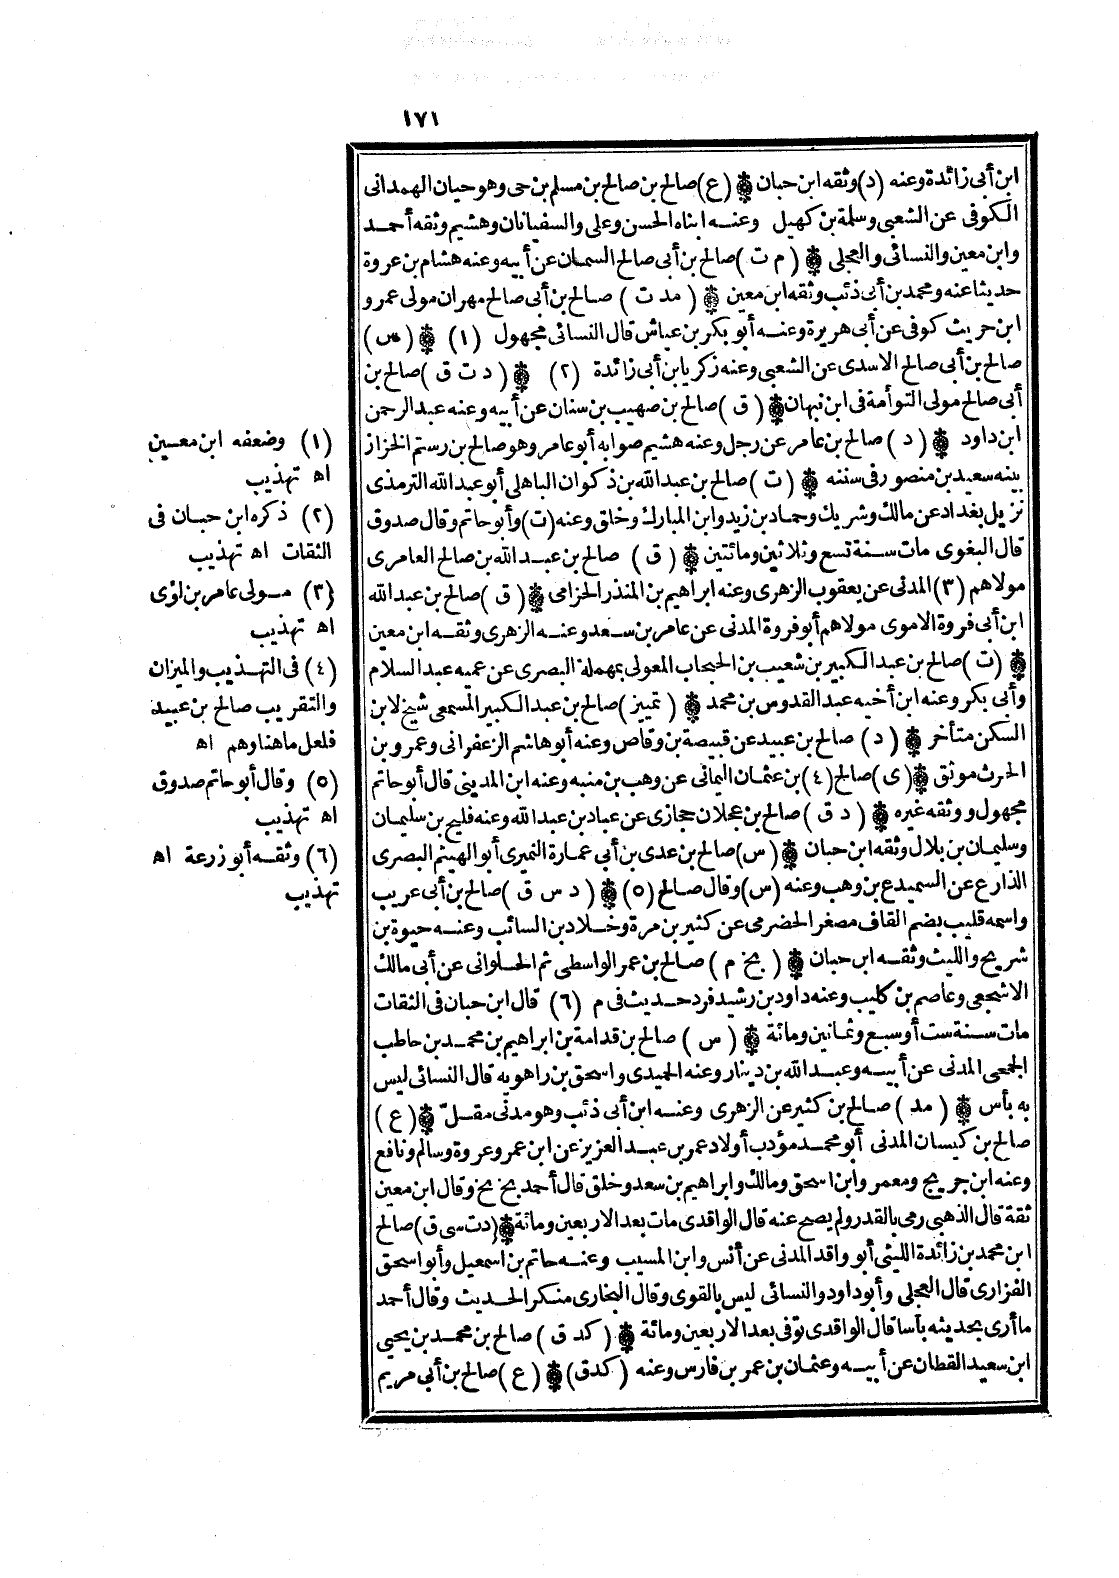 ١٧١
ابن أبى زائدة وعنه (د) وثقه ابن حبان ۞ (ع) صالح بن صالح بن مسلم بن حى وهو حيان الهمدانى
الكوفى عن الشعبى وسلمة بن كهيل وعنه ابناه الحسن وعلى والسفيانان وهشيم وثقه أحمد
وابن معين والنسائى والعجلى ۞ (م ت) صالح بن أبى صالح السمان عن أبيه وعنه هشام بن عروة
حديثا عنه ومحمد بن أبى ذئب وثقه ابن معين ۞ (مد ت) صالح بن أبى صالح مهران مولى عمرو
ابن حريث كوفى عن أبى هريرة وعنه أبو بكر بن عياش قال النسائى مجهول (١) ۞ (س)
صالح بن أبى صالح الاسدى عن الشعبى وعنه زكريا بن أبى زائدة (٢) ۞ (د ت ق) صالح بن
أبى صالح مولى التوأمة فى ابن نبهان ۞ (ق) صالح بن صهيب بن سنان عن أبيه وعنه عبد الرحمن
ابن داود ۞ (د) صالح بن عامر عن رجل وعنه هشيم صوابه أبو عامر وهو صالح بن رستم الخزاز
بينه سعيد بن منصور فى سننه ۞ (ت) صالح بن عبد الله بن ذكوان الباهلى أبو عبد الله الترمذى
نزيل بغداد عن مالك وشريك وحماد بن زيد وابن المبارك وخلق وعنه (ت) وأبو حاتم وقال صدوق
قال البغوى مات سنة تسع وثلاثين ومائتين ۞ (ق) صالح بن عبد الله بن صالح العامرى
مولاهم (٣) المدنى عن يعقوب الزهرى وعنه ابراهيم بن المنذر الحزامى ۞ (ق) صالح بن عبد الله
ابن أبى فروة الاموى مولاهم أبو فروة المدنى عن عامر بن سعد وعنه الزهرى وثقه ابن معين
۞ (ت) صالح بن عبد الكبير بن شعيب بن الحبحاب المعولى بمهملة البصرى عن عميه عبد السلام
وأبى بكر وعنه ابن أخيه عبد القدوس بن محمد ۞ (تمييز) صالح بن عبد الكبير المسمعى شيخ لابن
السكن متأخر ۞ (د) صالح بن عبيد عن قبيصة بن وقاص وعنه أبو هاشم الزعفرانى وعمرو بن
الحرث موثق ۞ (ى) صالح (٤) بن عثمان اليمانى عن وهب بن منبه وعنه ابن المدينى قال أبو حاتم
مجهول ووثقه غيره ۞ (د ق) صالح بن عجلان حجازى عن عباد بن عبد الله وعنه فليح بن سليمان
وسليمان بن بلال وثقه ابن حبان ۞ (س) صالح بن عدى بن أبى عمارة النميرى أبو الهيثم البصرى
الذارع عن السميدع بن وهب وعنه (س) وقال صالح (٥) ۞ (د س ق) صالح بن أبى عريب
واسمه قليب بضم القاف مصغر الحضرمى عن كثير بن مرة وخلاد بن السائب وعنه حيوة بن
شريح والليث وثقه ابن حبان ۞ (بخ م) صالح بن عمر الواسطى ثم الحلوانى عن أبى مالك
الاشجعى وعاصم بن كليب وعنه داود بن رشيد فرد حديث فى م (٦) قال ابن حبان فى الثقات
مات سنة ست أو سبع وثمانين ومائة ۞ (س) صالح بن قدامة بن ابراهيم بن محمد بن حاطب
الجمحى المدنى عن أبيه وعبد الله بن دينار وعنه الحميدى واسحق بن راهويه قال النسائى ليس
به بأس ۞ (مد) صالح بن كثير عن الزهرى وعنه ابن أبى ذئب وهو مدنى مقلّ ۞ (ع)
صالح بن كيسان المدنى أبو محمد مؤدب أولاد عمر بن عبد العزيز عن ابن عمر وعروة وسالم ونافع
وعنه ابن جريج ومعمر وابن اسحق ومالك وابراهيم بن سعد وخلق قال أحمد بخ بخ وقال ابن معين
ثقة قال الذهبى رمى بالقدر ولم يصح عنه قال الواقدى مات بعد الاربعين ومائة ۞ (د ت سى ق) صالح
ابن محمد بن زائدة الليثى أبو واقد المدنى عن أنس وابن المسيب وعنه حاتم بن اسمعيل وأبو اسحق
الفزارى قال العجلى وأبو داود والنسائى ليس بالقوى وقال البخارى منكر الحديث وقال أحمد
ما أرى بحديثه بأسا قال الواقدى توفى بعد الاربعين ومائة ۞ (كد ق) صالح بن محمد بن يحيى
ابن سعيد القطان عن أبيه وعثمان بن عمر بن فارس وعنه (كد ق) ۞ (ع) صالح بن أبى مريم
(١) وضعفه ابن معين
اه تهذيب
(٢) ذكره ابن حبان فى
الثقات اه تهذيب
(٣) مولى عامر بن لؤى
اه تهذيب
(٤) فى التهذيب والميزان
والتقريب صالح بن عبيد
فلعل ما هنا وهم اه
(٥) وقال أبو حاتم صدوق
اه تهذيب
(٦) وثقه أبو زرعة اه
تهذيب